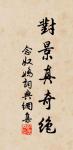 對景真奇絕
念奴嬌詞典網集